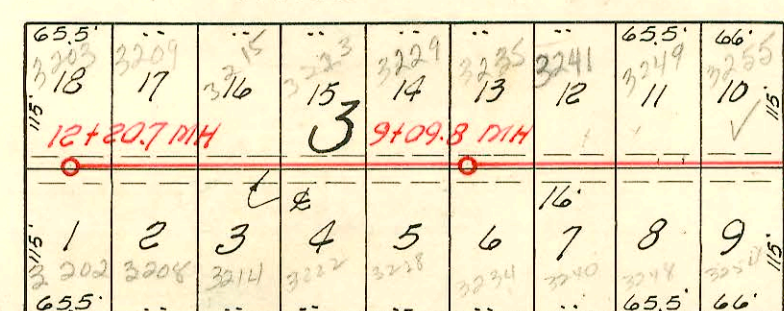 65.5' " " " " " 65.5' 66'
3203 3209 3215 3223 3229 3235 3241 3249 3255
115' 18 17 16 15 14 13 12 11 10 115'
12+20.7 MH 3 9+09.8 MH
℄ 16'
115' 1 2 3 4 5 6 7 8 9 115'
3202 3208 3214 3222 3228 3234 3240 3248
65.5' " " " " " " 65.5' 66'